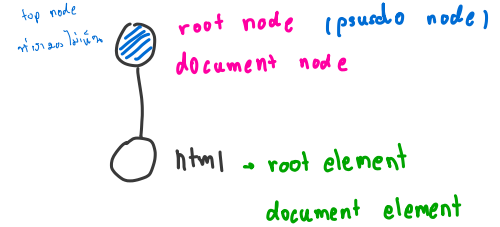 top node
ที่เรามองไม่เห็น
root node (psusdo node)
document node
html → root element
document element